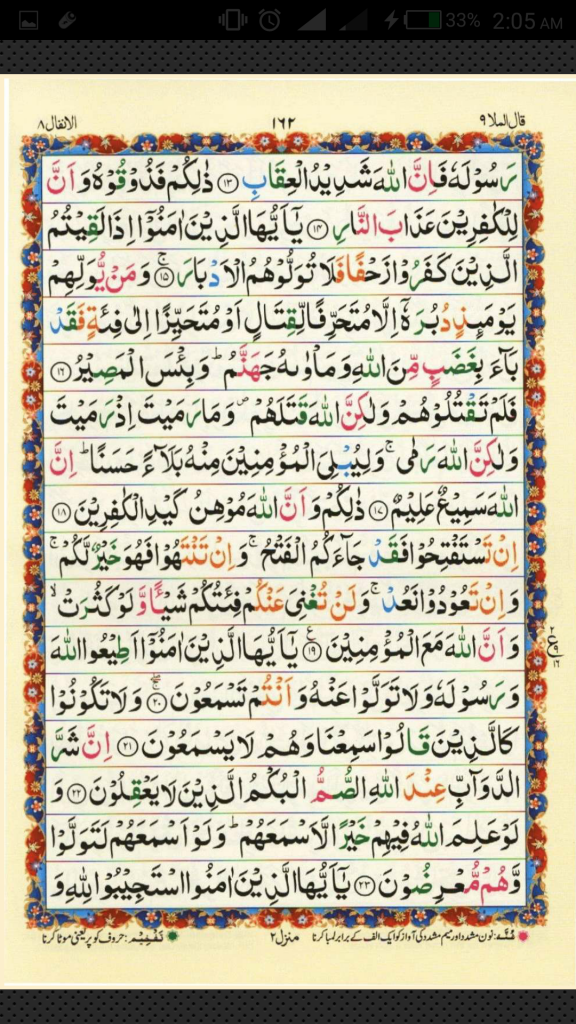 33% 2:05 AM
قال الملا ٩ ١٦٢ الانفال ٨
رَسُوْلَهٗ فَاِنَّ اللّٰهَ شَدِيْدُ الْعِقَابِ ۝۱۳ ذٰلِكُمْ فَذُوْقُوْهُ وَ اَنَّ
لِلْكٰفِرِيْنَ عَذَابَ النَّارِ ۝۱۴ يٰٓاَيُّهَا الَّذِيْنَ اٰمَنُوْۤا اِذَا لَقِيْتُمُ
الَّذِيْنَ كَفَرُوْا زَحْفًا فَلَا تُوَلُّوْهُمُ الْاَدْبَارَ ۚ۝۱۵ وَ مَنْ يُّوَلِّهِمْ
يَوْمَىِٕذٍ دُبُرَهٗۤ اِلَّا مُتَحَرِّفًا لِّقِتَالٍ اَوْ مُتَحَيِّزًا اِلٰى فِئَةٍ فَقَدْ
بَآءَ بِغَضَبٍ مِّنَ اللّٰهِ وَ مَاْوٰىهُ جَهَنَّمُ ؕ وَ بِئْسَ الْمَصِيْرُ ۝۱۶
فَلَمْ تَقْتُلُوْهُمْ وَ لٰكِنَّ اللّٰهَ قَتَلَهُمْ ۪ وَ مَا رَمَيْتَ اِذْ رَمَيْتَ
وَ لٰكِنَّ اللّٰهَ رَمٰى ۚ وَ لِيُبْلِيَ الْمُؤْمِنِيْنَ مِنْهُ بَلَآءً حَسَنًا ؕ اِنَّ
اللّٰهَ سَمِيْعٌ عَلِيْمٌ ۝۱۷ ذٰلِكُمْ وَ اَنَّ اللّٰهَ مُوْهِنُ كَيْدِ الْكٰفِرِيْنَ ۝۱۸
اِنْ تَسْتَفْتِحُوْا فَقَدْ جَآءَكُمُ الْفَتْحُ ۚ وَ اِنْ تَنْتَهُوْا فَهُوَ خَيْرٌ لَّكُمْ ۚ
وَ اِنْ تَعُوْدُوْا نَعُدْ ۚ وَ لَنْ تُغْنِيَ عَنْكُمْ فِئَتُكُمْ شَيْـًٔا وَّ لَوْ كَثُرَتْ ۙ
وَ اَنَّ اللّٰهَ مَعَ الْمُؤْمِنِيْنَ ۝۱۹ يٰٓاَيُّهَا الَّذِيْنَ اٰمَنُوْۤا اَطِيْعُوا اللّٰهَ
وَ رَسُوْلَهٗ وَ لَا تَوَلَّوْا عَنْهُ وَ اَنْتُمْ تَسْمَعُوْنَ ۝۲۰ وَ لَا تَكُوْنُوْا
كَالَّذِيْنَ قَالُوْا سَمِعْنَا وَ هُمْ لَا يَسْمَعُوْنَ ۝۲۱ اِنَّ شَرَّ
الدَّوَآبِّ عِنْدَ اللّٰهِ الصُّمُّ الْبُكْمُ الَّذِيْنَ لَا يَعْقِلُوْنَ ۝۲۲ وَ
لَوْ عَلِمَ اللّٰهُ فِيْهِمْ خَيْرًا لَّاَسْمَعَهُمْ ؕ وَ لَوْ اَسْمَعَهُمْ لَتَوَلَّوْا
وَّ هُمْ مُّعْرِضُوْنَ ۝۲۳ يٰٓاَيُّهَا الَّذِيْنَ اٰمَنُوا اسْتَجِيْبُوْا لِلّٰهِ وَ
غُنَّہ: نون مشدد اور میم مشدد کی آواز کو ایک الف کے برابر لمبا کرنا منزل ٢ تفخیم: حروف کو پُر یعنی موٹا کرنا